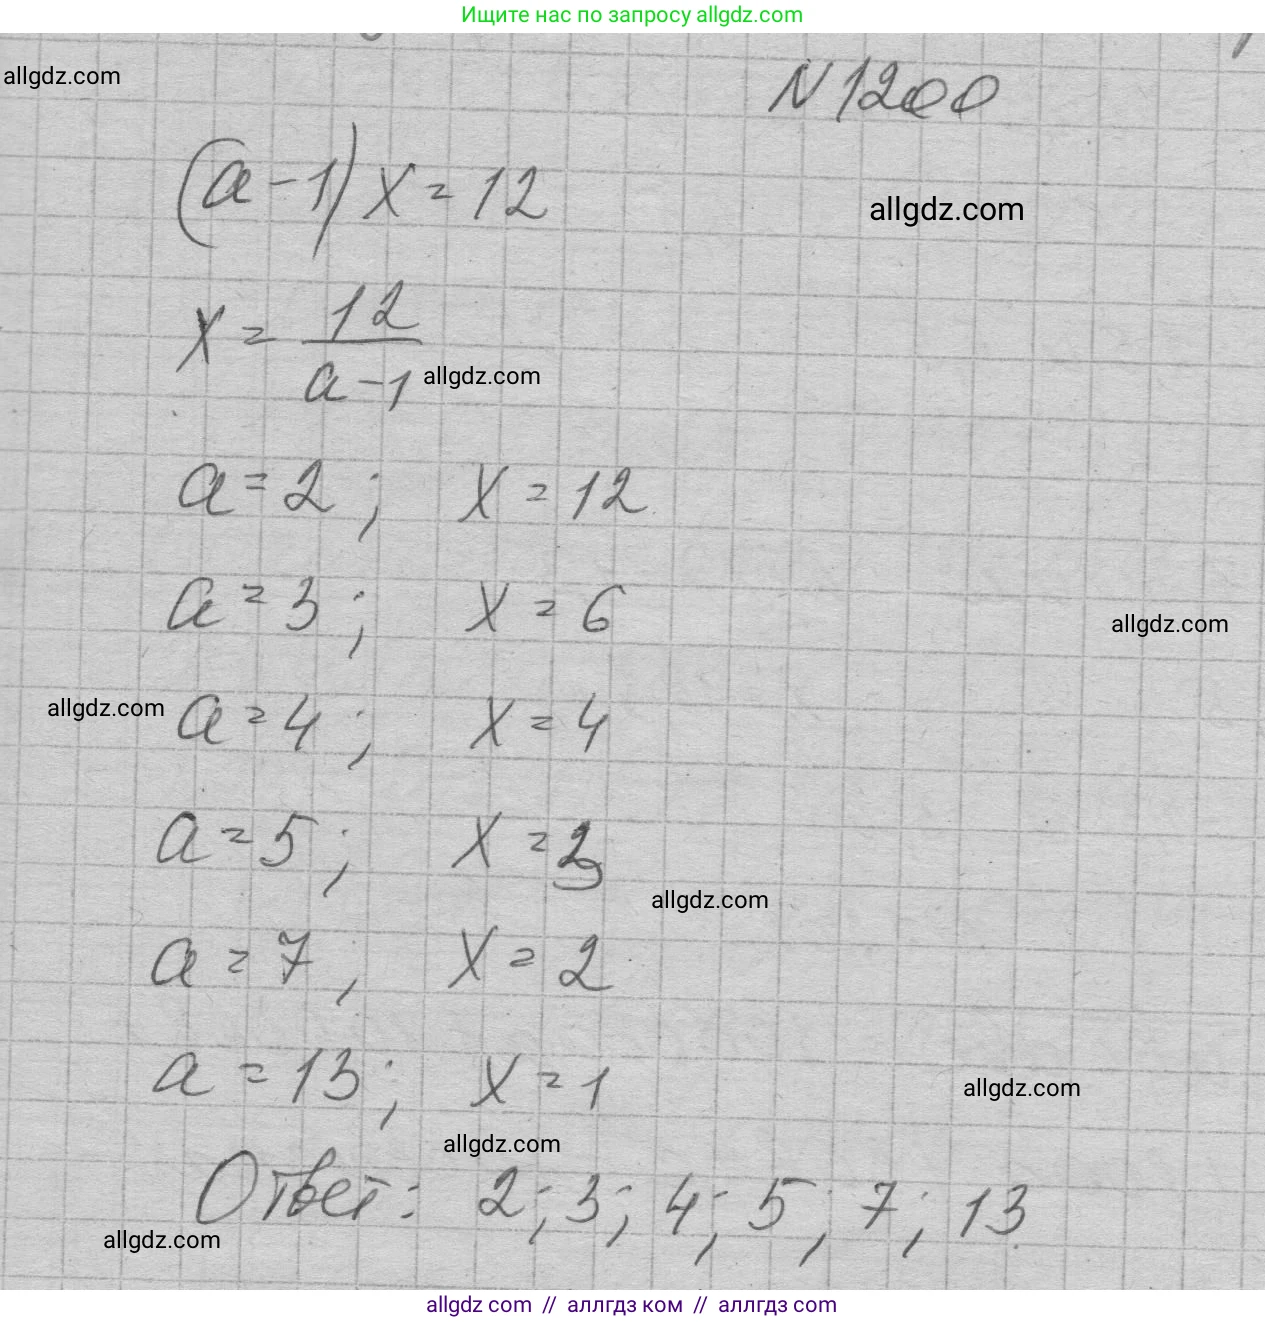 Ищите нас по запросу allgdz.com
allgdz.com
N 1200
(a-1) x = 12
allgdz.com
x = 12/(a-1)
allgdz.com
a = 2 ; x = 12
a = 3 ; x = 6
allgdz.com
allgdz.com
a = 4 ; x = 4
a = 5 ; x = 3
allgdz.com
a = 7 , x = 2
a = 13 ; x = 1
allgdz.com
allgdz.com
Ответ: 2; 3; 4; 5; 7; 13
allgdz.com
allgdz com // аллгдз ком // аллгдз com